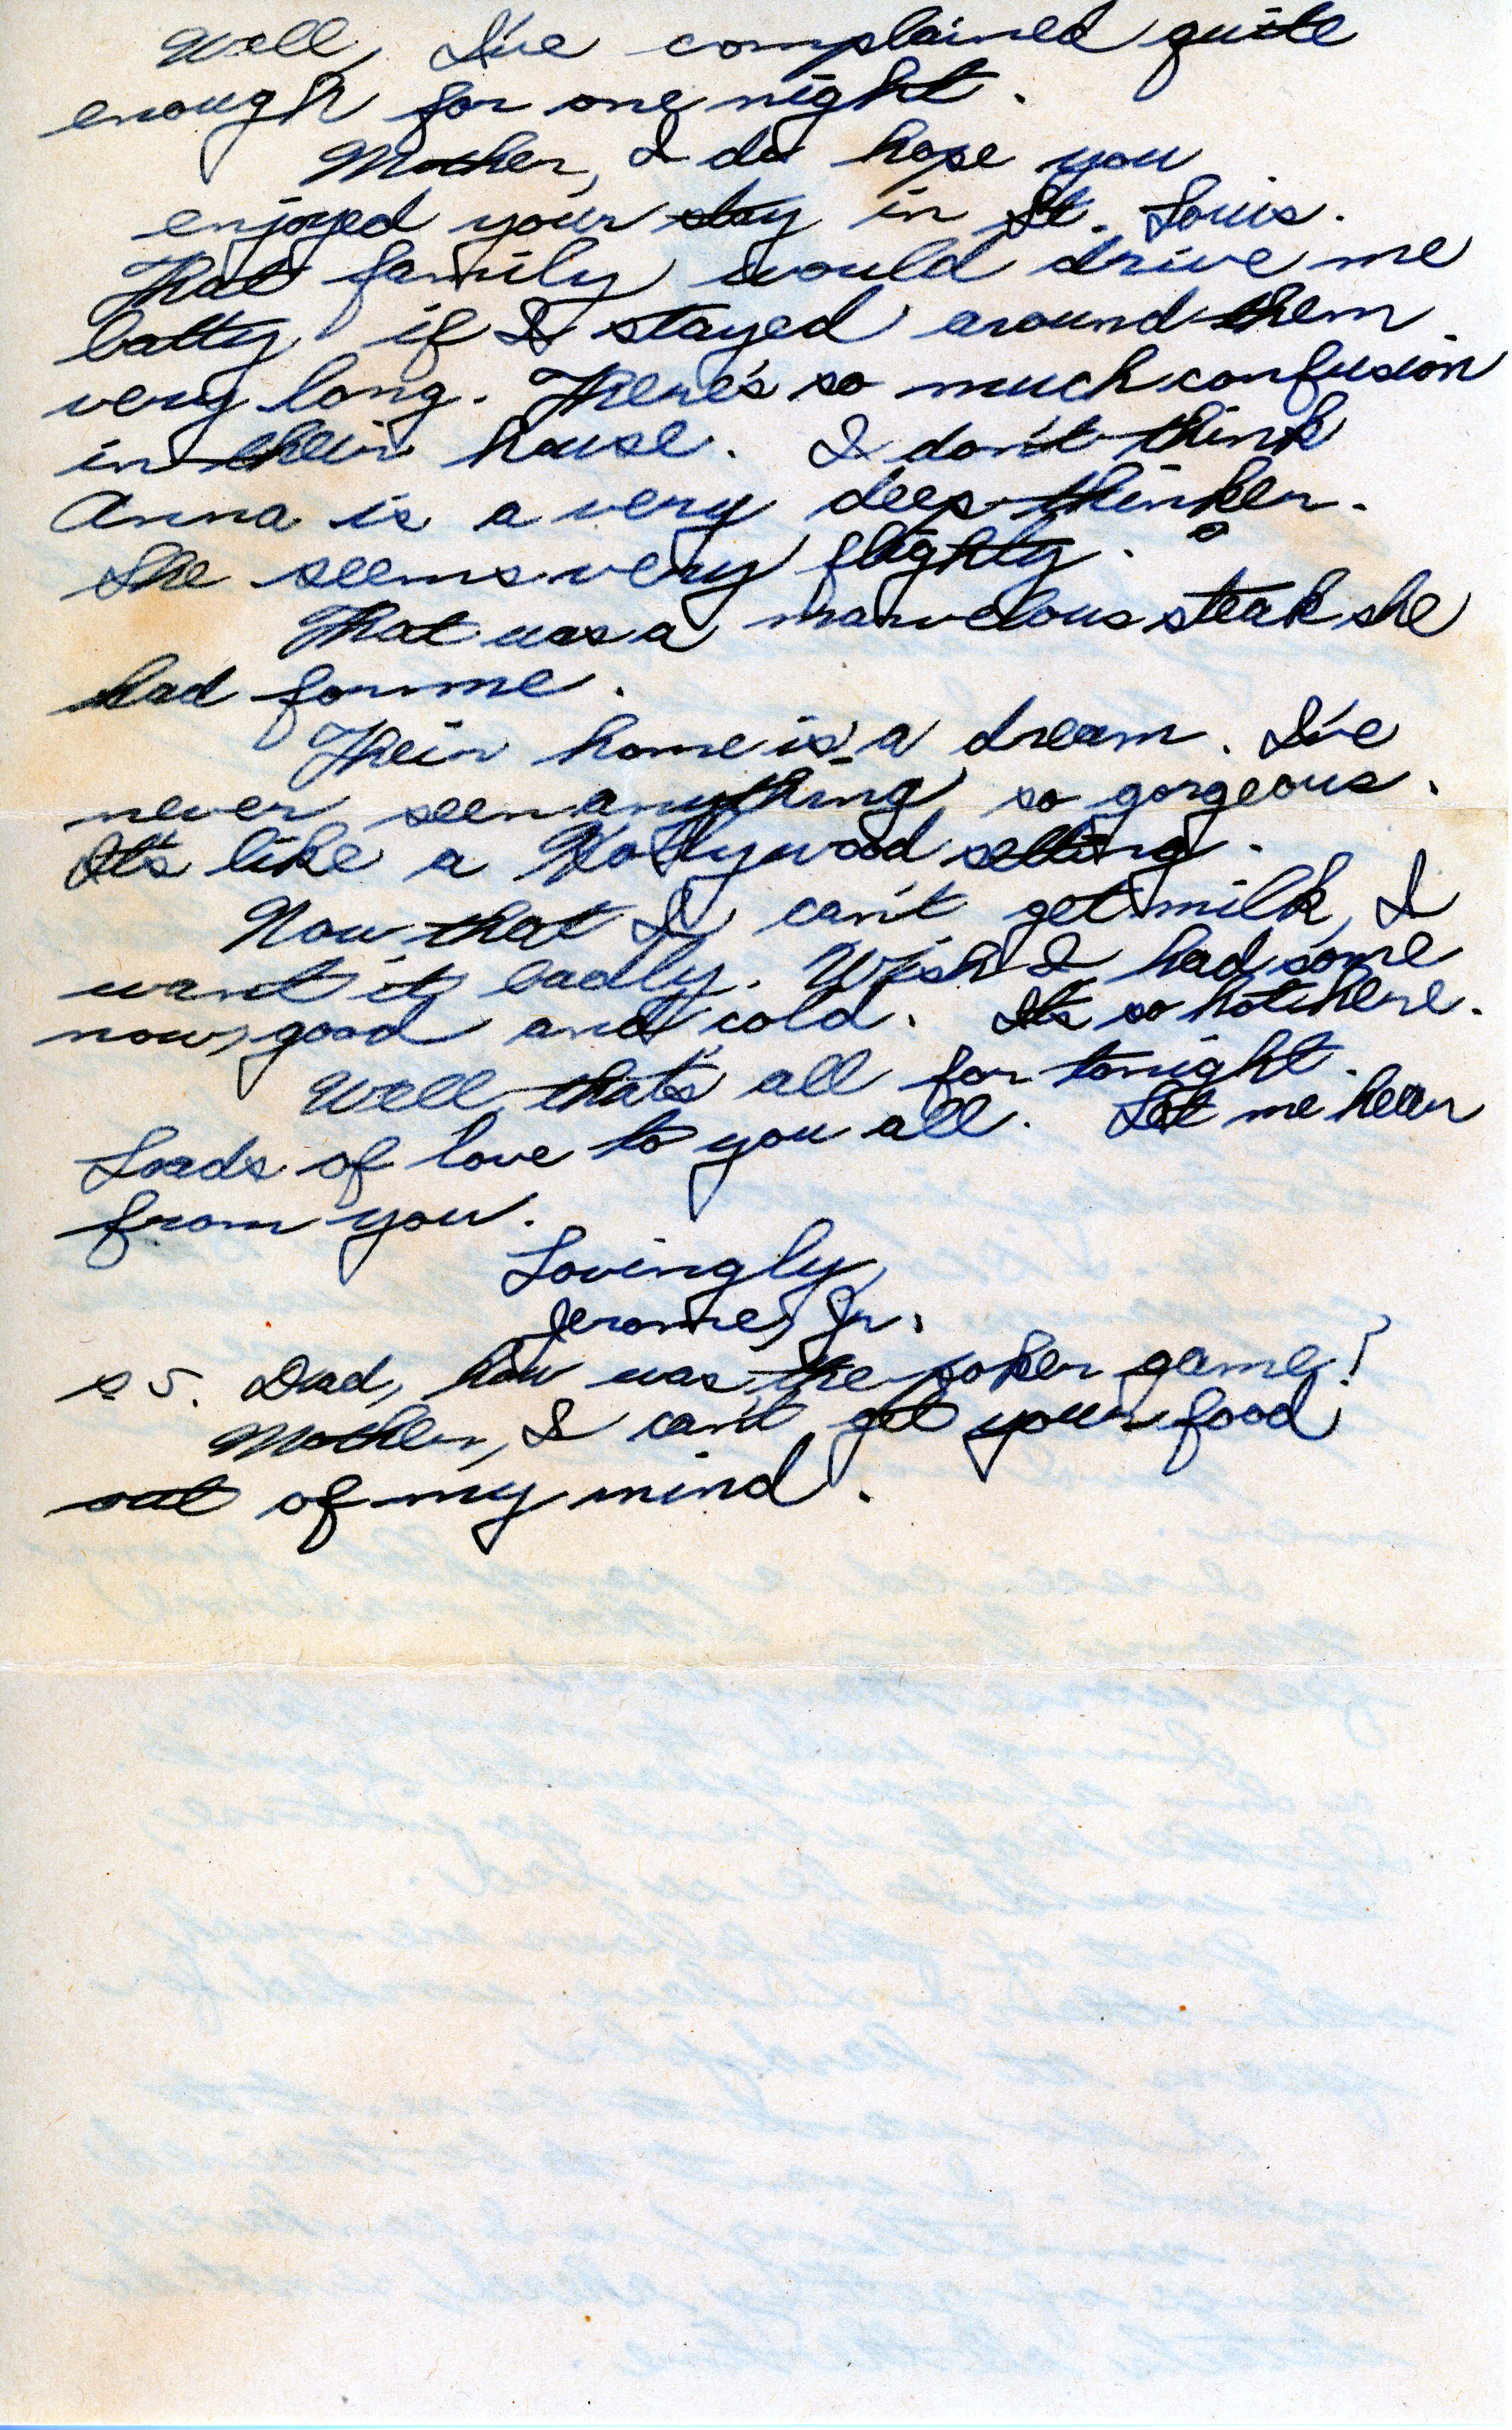 Well, I've complained quite
enough for one night.
Mother, I do hope you
enjoyed your stay in St. Louis.
That family would drive me
batty if I stayed around them
very long. There's so much confusion
in their house. I don't think
Anna is a very deep thinker.
She seems very flighty.
That was a marvelous steak she
had for me.
Their home is a dream. I've
never seen anything so gorgeous.
It's like a Hollywood setting.
Now that I can't get milk, I
want it badly. Wish I had some
now, good and cold. It's so hot here.
Well that's all for tonight.
Loads of love to you all. Let me hear
from you.
Lovingly,
Jerome, Jr.
P.S. Dad, how was the poker game?
Mother, I can't get your food
out of my mind.